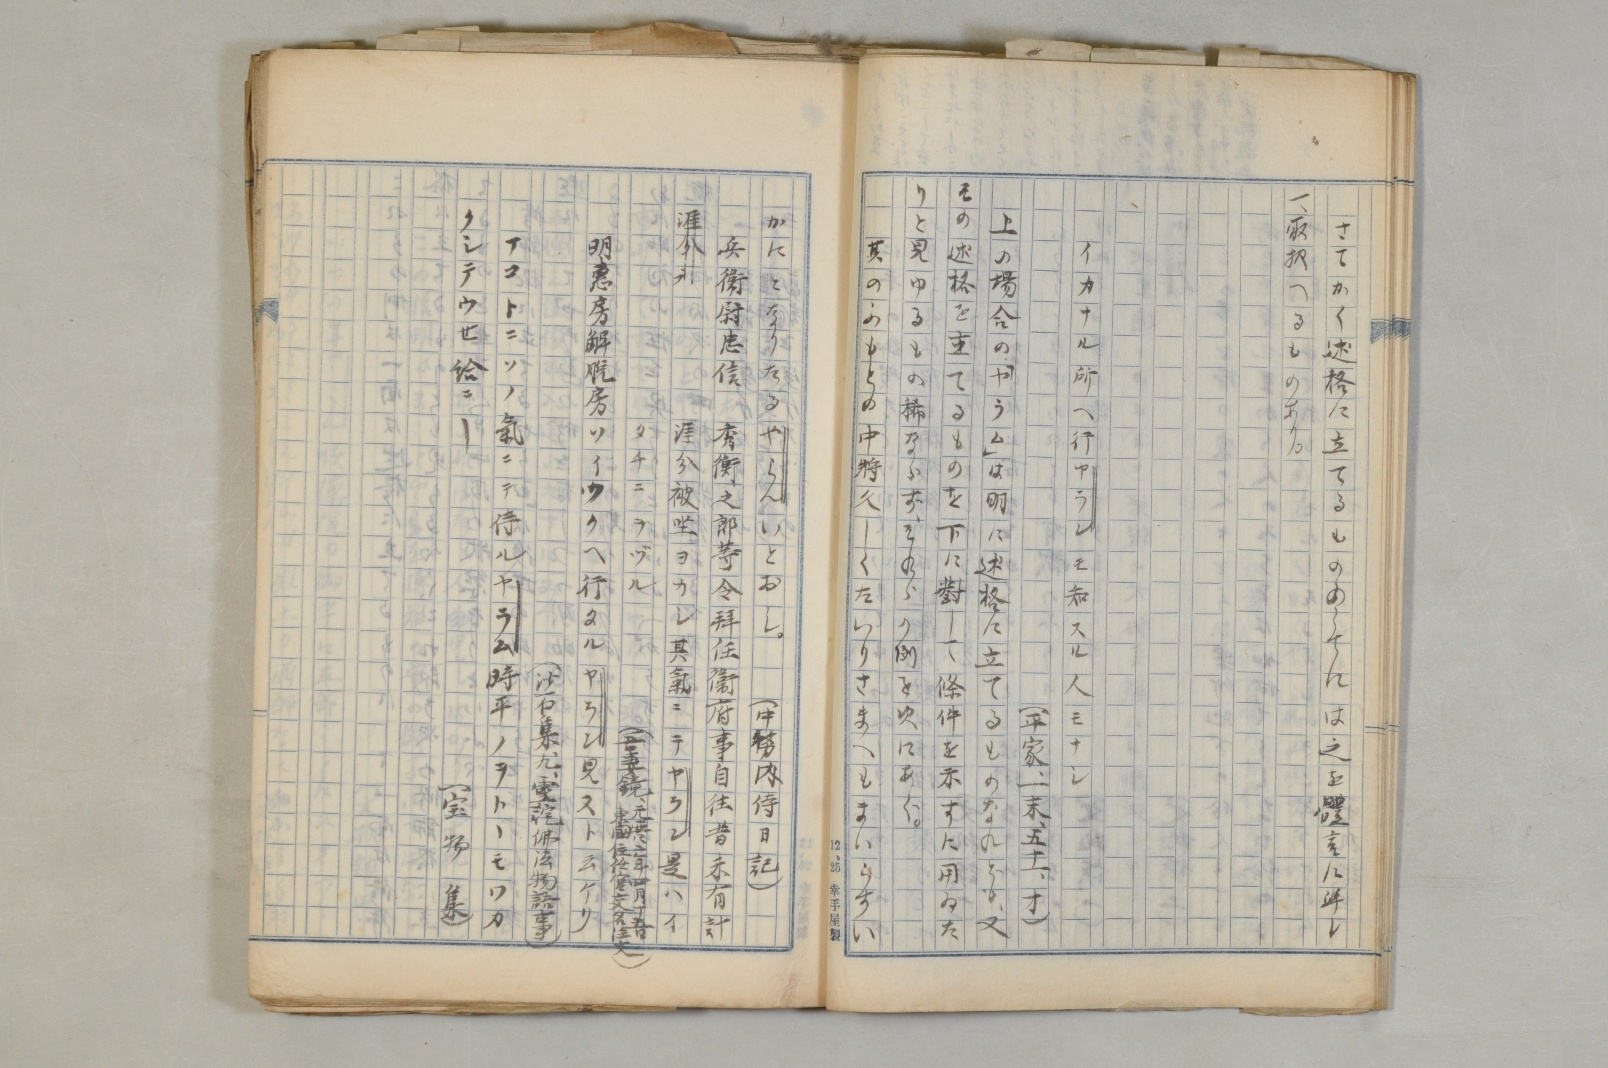 さてかく述格に立てるものゝうちには之を體言に準し
て取扱へるものあり。
イカナル所ヘ行ヤランモ知スル人モナシ
(平家、一末、五十一、オ)
上の場合の「やうム」は明に述格に立てるものなれども、又
その述格を主てるものを下に對して條件を示すに用ゐた
りと見ゆるもの稀ならず、それらの例を次にあぐ。
其のゝもとの中將久しくたいりさまへもまいらすい
かにとなりたるやらんいとおし。 (中務内侍日記)
兵衛尉忠信 秀衡之郎等令拜任衞府事自往昔未有計
涯分ヲ 涯分被坐ヨカシ其氣ニテヤラン是ハイ
タチニヲヅル
(吾妻鏡、元暦二年四月十五日 東國住任官交名注文)
明恵房解脱房ツイウクヘ行タルヤラン見ストムケリ
(沙石集、九、霊託佛法物語事)
アコトニソノ氣ニテ侍ルヤラム時平ノヲトヽモワカ
クシテウせ給ニー (宝物集)
12、25 幸手屋製